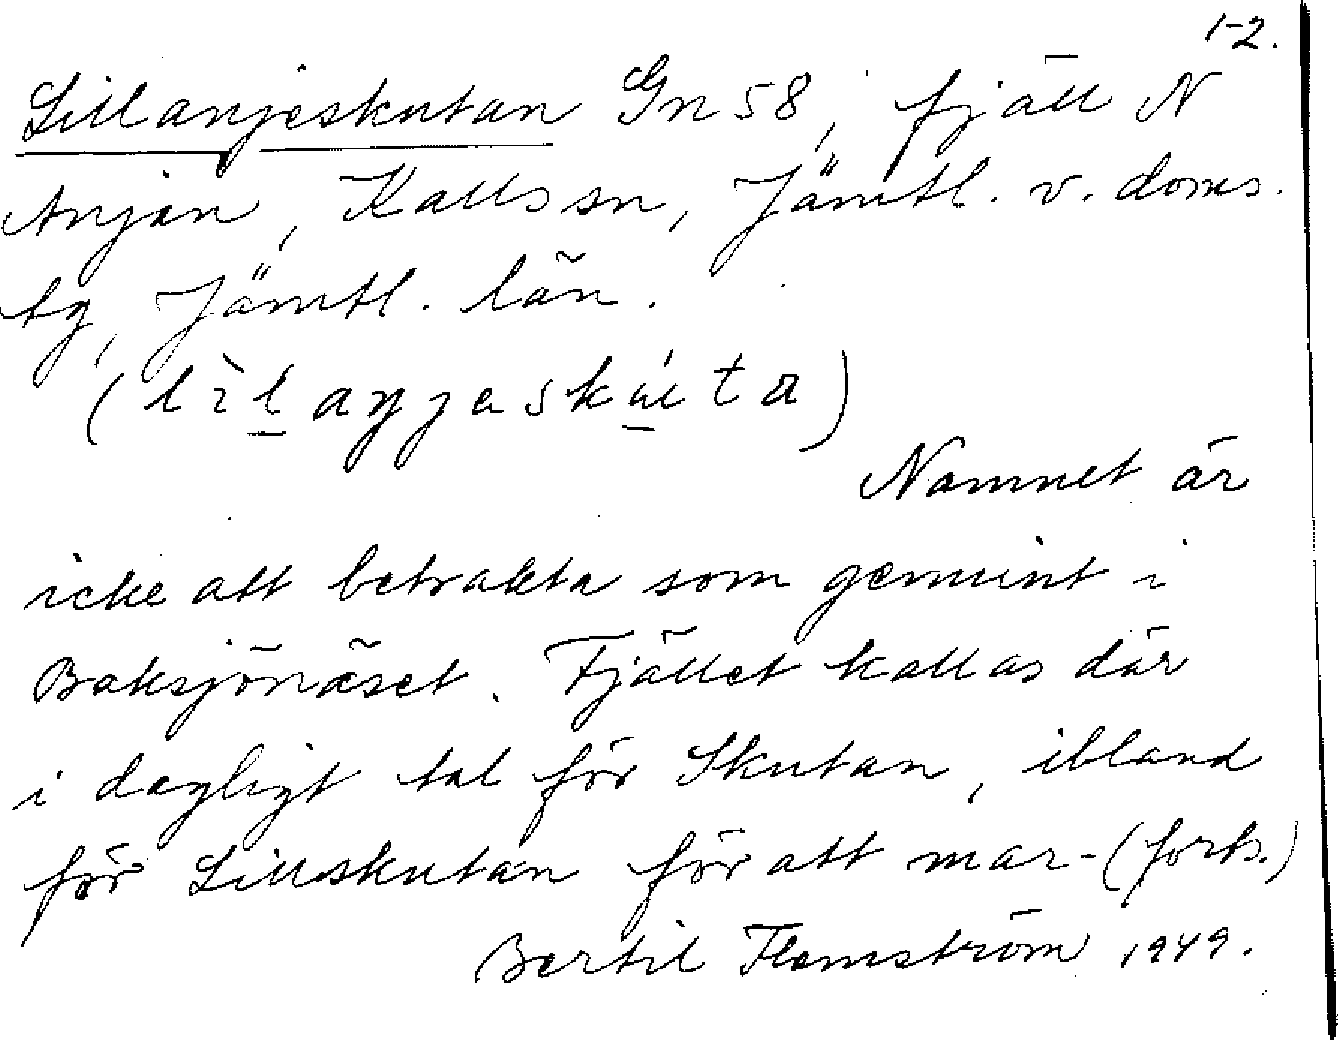 1-2.
Lillanjeskutan Gn 58, fjäll N
Anjan, Kalls sn, Jämtl. v. doms.
tg, Jämtl. län.
(lìlaŋjaskúta)
Namnet är
icke att betrakta som gemeint i
Baksjönäset. Fjället kallas där
i dagligt tal för Skutan, ibland
för Lillskutan för att mar- (forts.)
Bertil Flemström 1949.